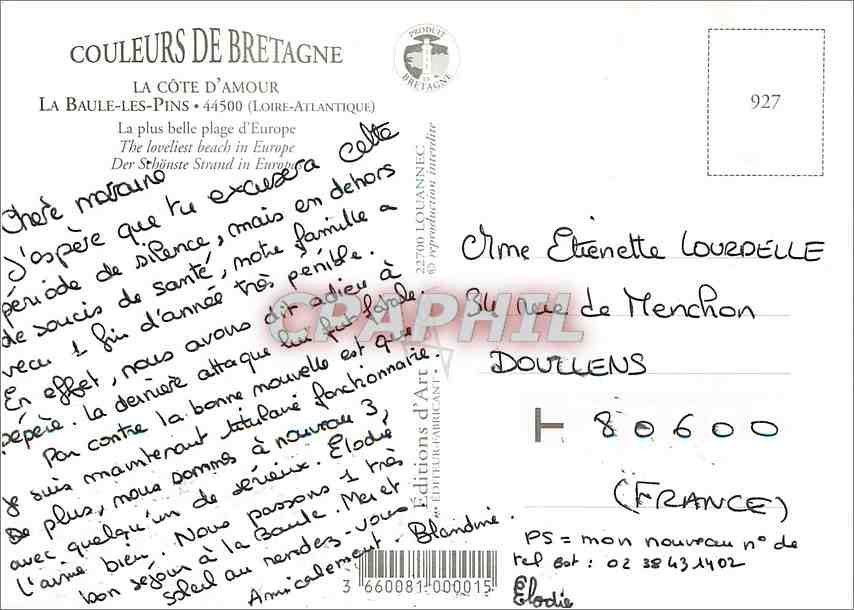 COULEURS DE BRETAGNE
LA CÔTE D'AMOUR
LA BAULE-LES-PINS • 44500 (LOIRE-ATLANTIQUE)
La plus belle plage d'Europe
The loveliest beach in Europe
Der Schönste Strand in Europas
PRODUIT
EN
BRETAGNE
927
Chère marraine
J'aspère que tu excusera cette
période de silence, mais en dehors
de soucis de santé, notre famille a
vecu 1 fin d'année très pénible.
En effet, nous avons dit adieu à
pépère. La dernière attaque lui fut fatale.
Par contre la bonne nouvelle est que
je suis maintenant titulaire fonctionnaire.
De plus, nous sommes à nouveau 3,
avec quelqu'un de sérieux. Élodie
l'aime bien. Nous passons 1 très
bon séjour à la Baule. Mer et
soleil au rendez-vous
Amicalement - Blandine.
22700 LOUANNEC
© reproduction interdite
Éditions d'Art
ÉDITEUR-FABRICANT
CPAPHIL
3 660081 000015
Mme Etienette LOURDELLE
34 rue de Menchon
DOULLENS
80600
(FRANCE)
PS = mon nouveau n° de
tel est : 02 38 43 14 02
Elodie